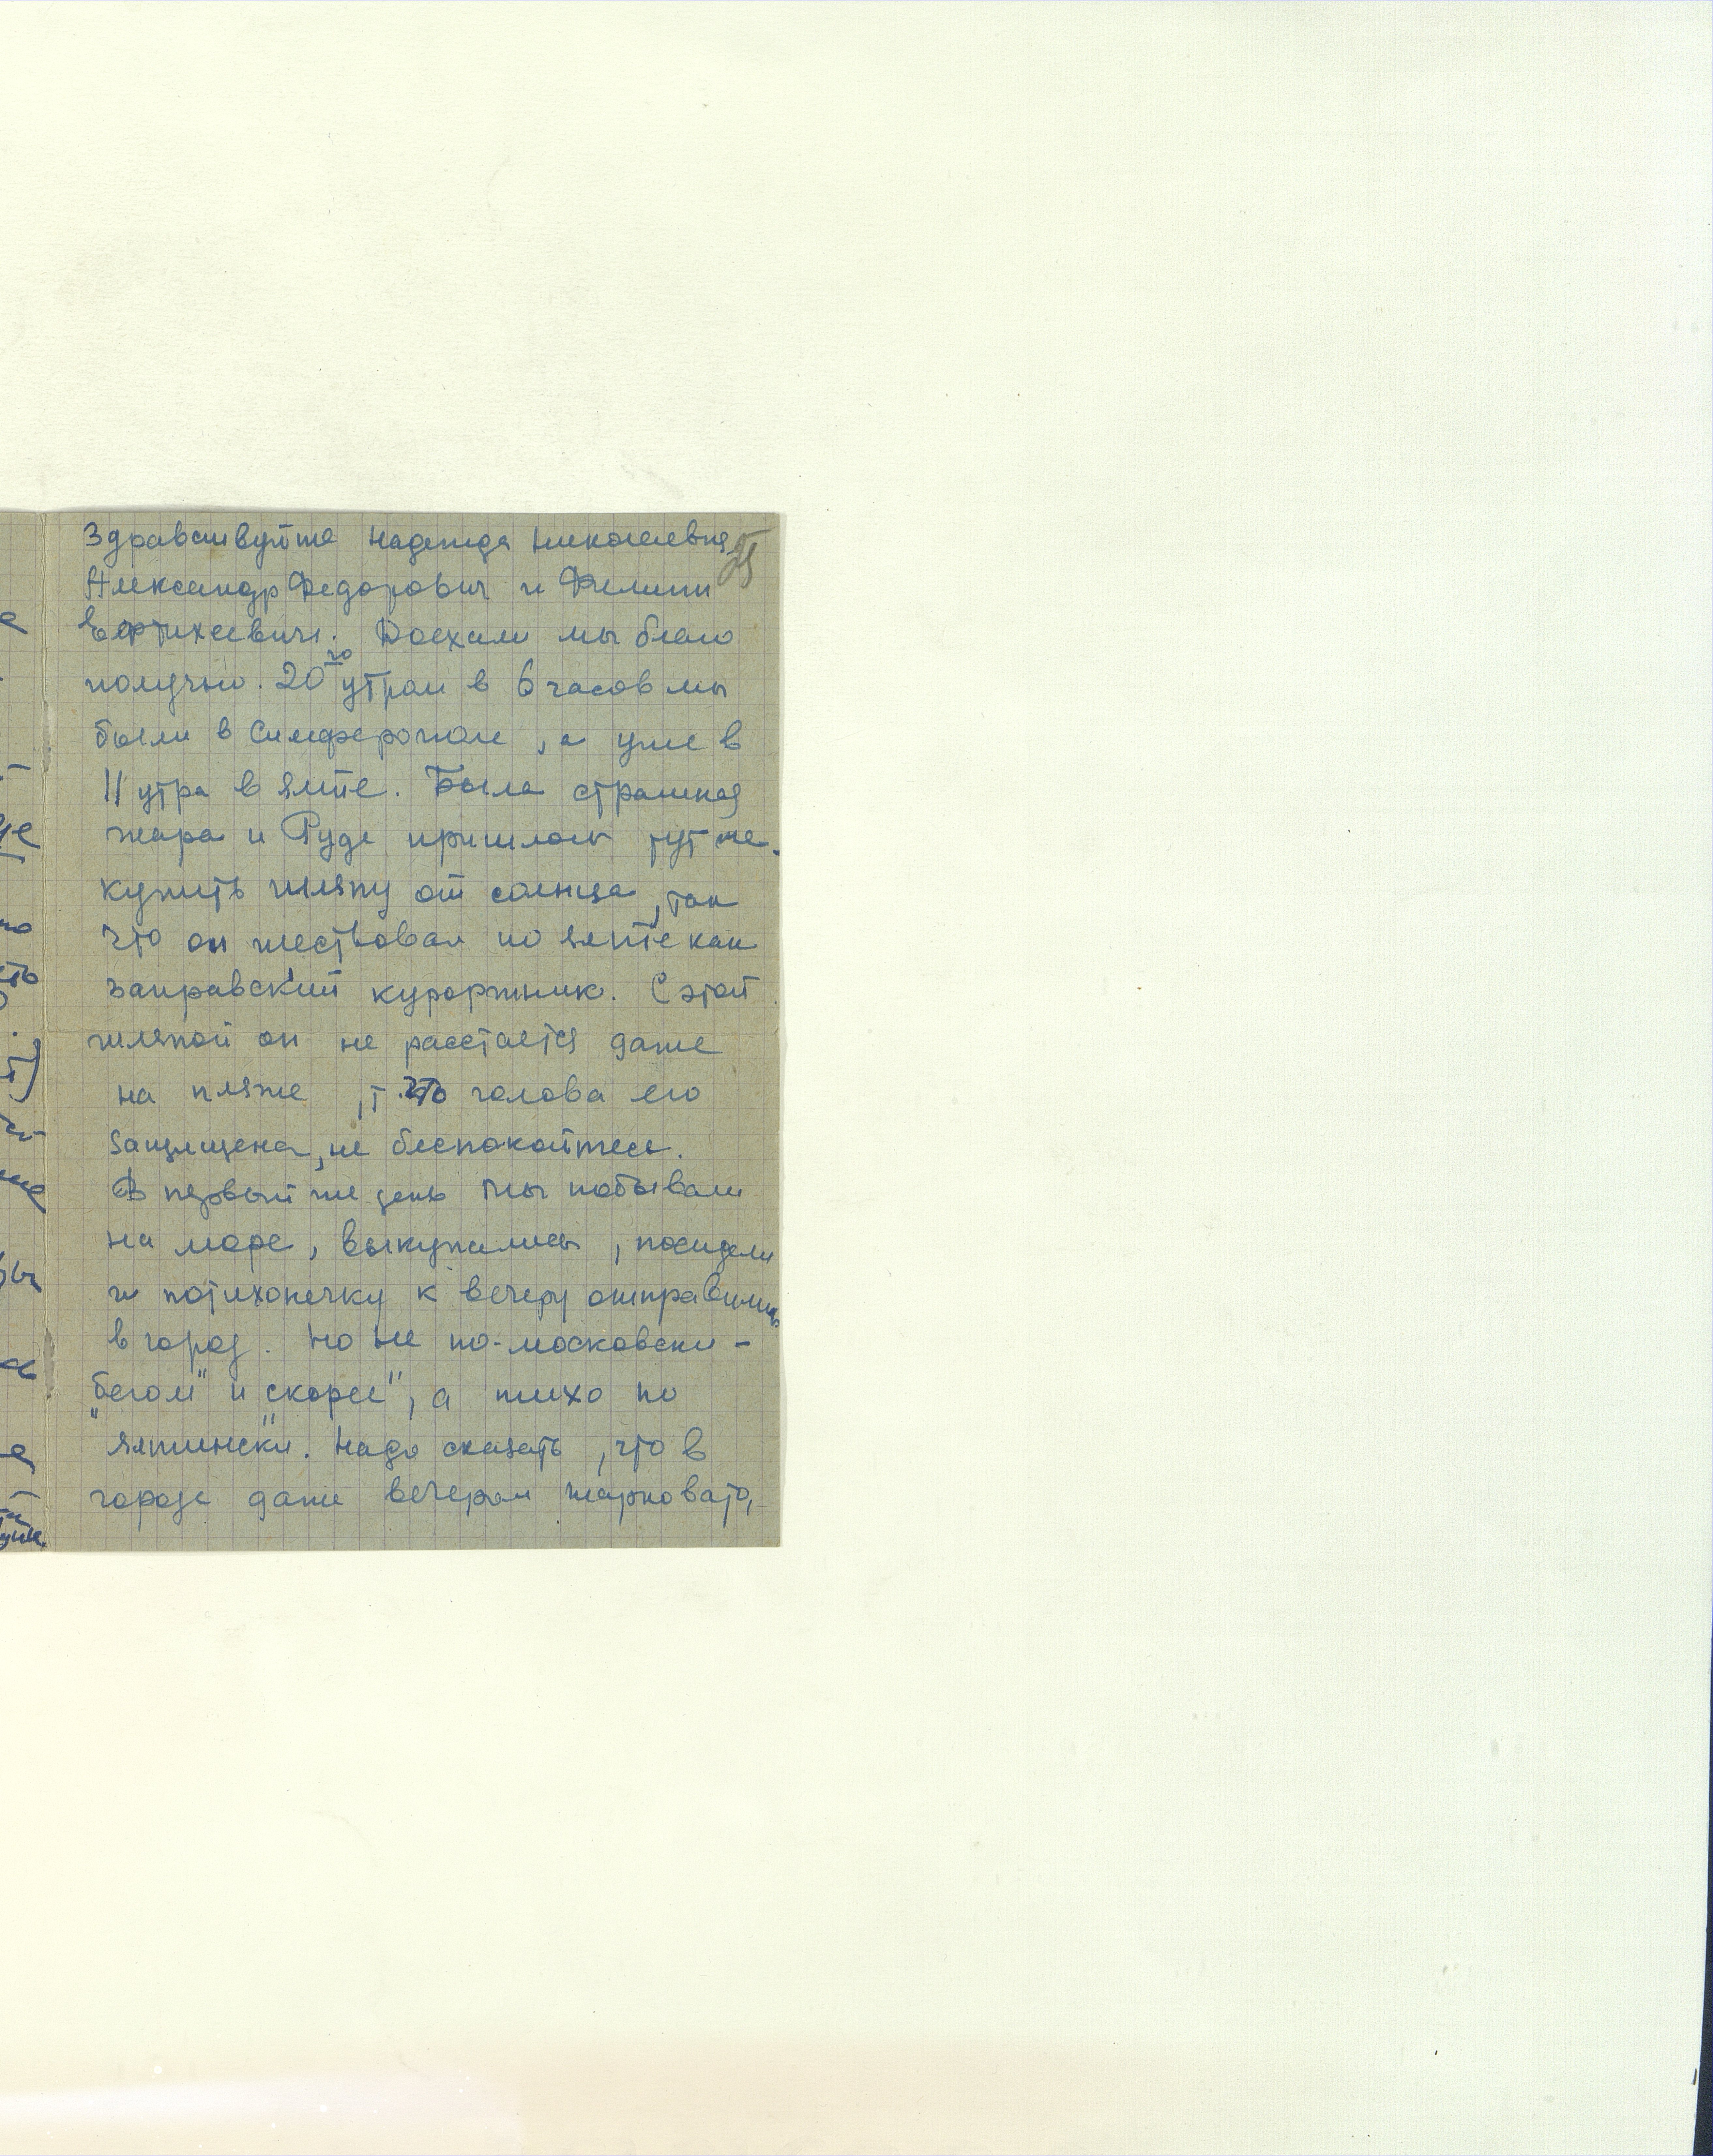 Здравствуйте Надежда Николаевна,
Александр Федорович и Филипп
Евтихиевич. Доехали мы благо
получно. 20го утром в 6 часов мы
были в Симферополе, а уже в
11 утра в Ялте. Была страшная
жара и Руде пришлось тут же
купить шляпу от солнца, так
что он шествовал по Ялте как
заправский курортник. С этой
шляпой он не расстается даже
на пляже, т. что голова его
защищена, не беспокойтесь.
В первый же день мы побывали
на море, выкупались, посидели
и потихонечку к вечеру отправились
в город. Но не по-московски -
"бегом" и "скорее", а тихо по
ялтински. Надо сказать, что в
городе даже вечером жарковато,